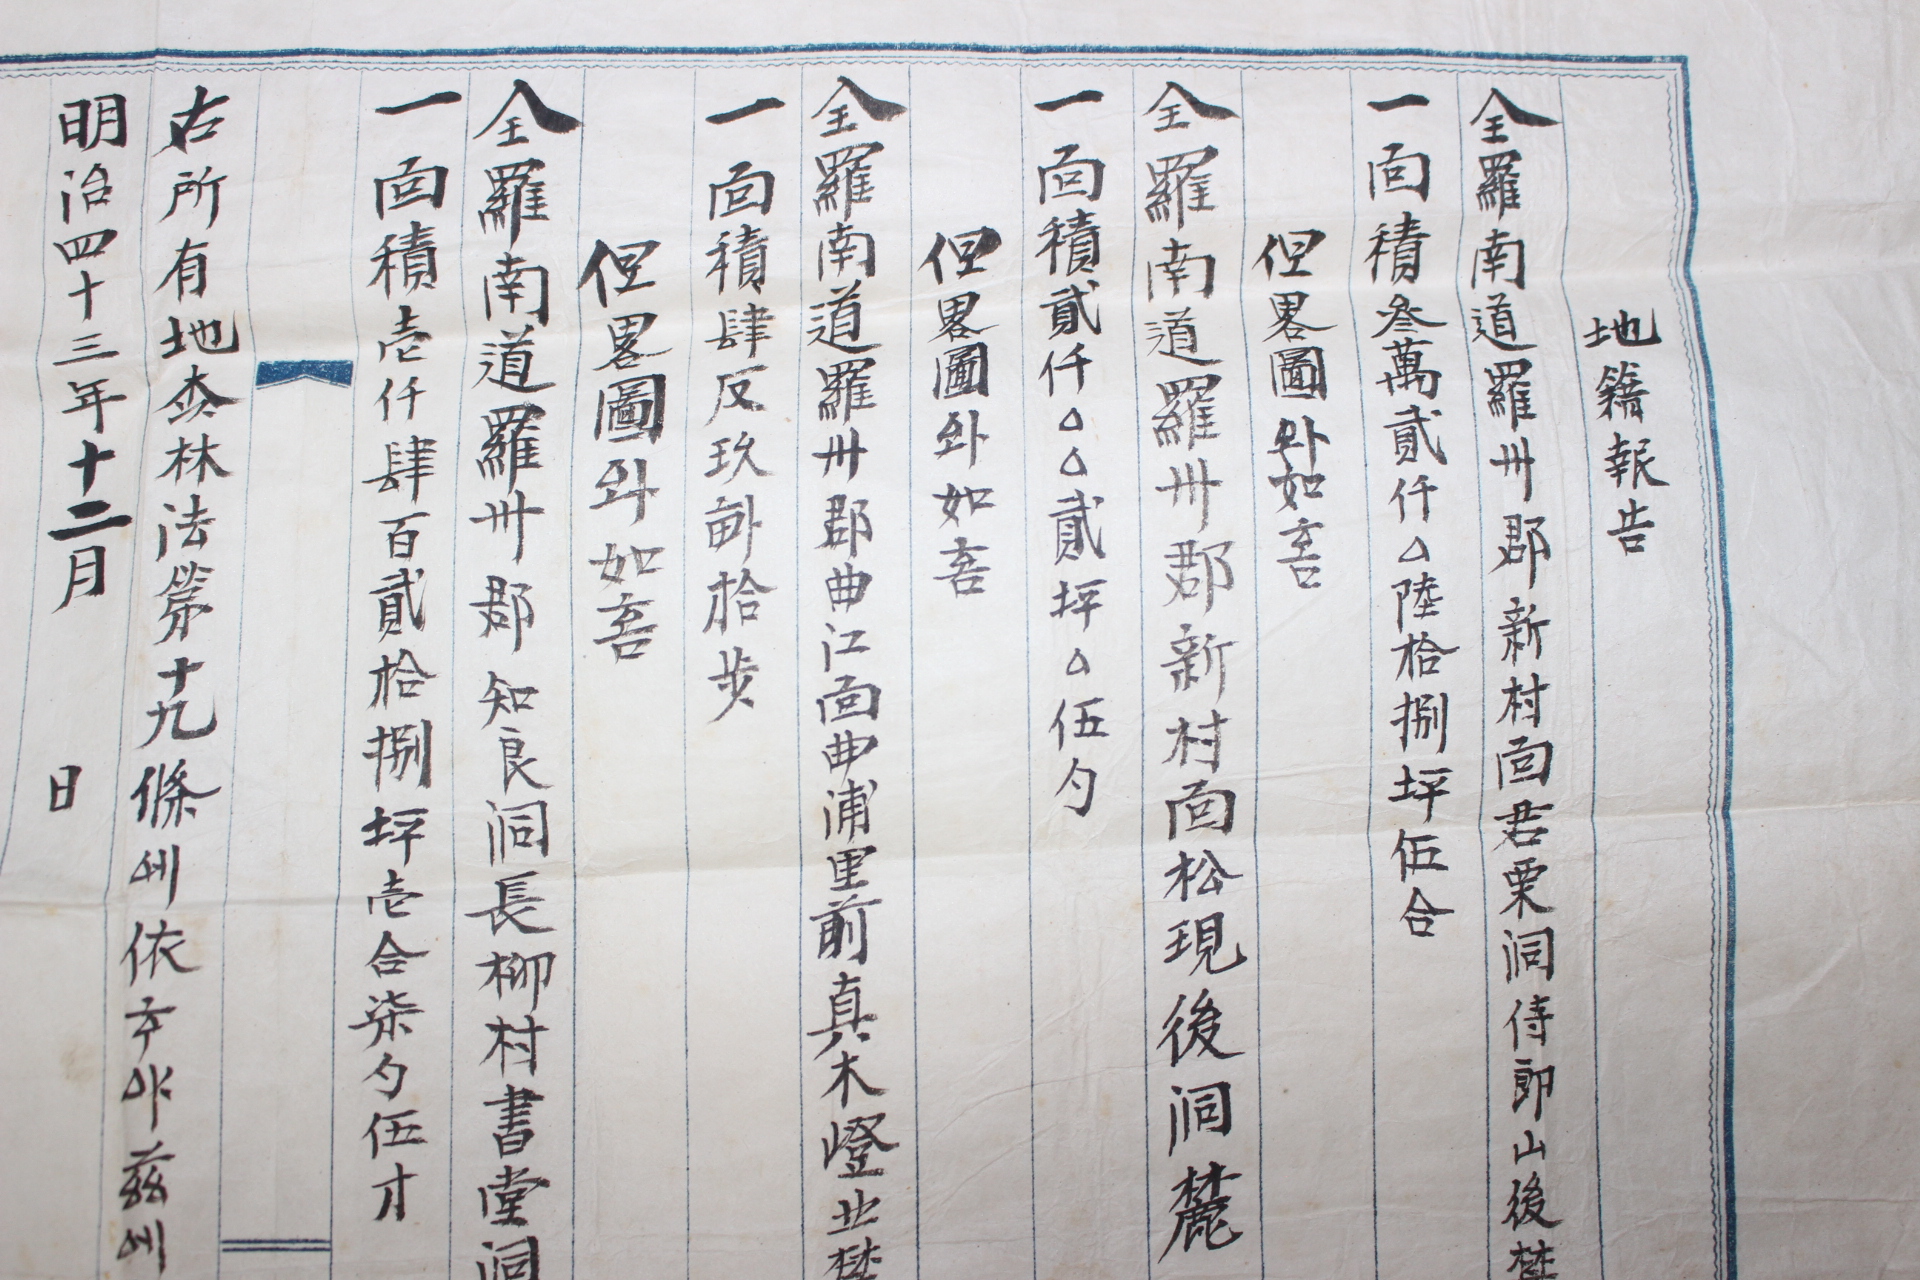 地籍報告
全羅南道羅州郡新村面君栗洞侍郎山後麓
一面積叄萬貳仟△陸拾捌坪伍合
但畧圖와如함
全羅南道羅州郡新村面松現後洞麓
一面積貳仟△△貳坪△伍勺
但畧圖와如함
全羅南道羅州郡曲江面曲浦里前真木嶝北麓
一面積肆反玖畝拾步
但畧圖와如함
全羅南道羅州郡知良洞長柳村書堂洞
一面積壱仟肆百貳拾捌坪壱合柒勺伍才
右所有地森林法第十九條에依하야茲에
明治四十三年十二月 日